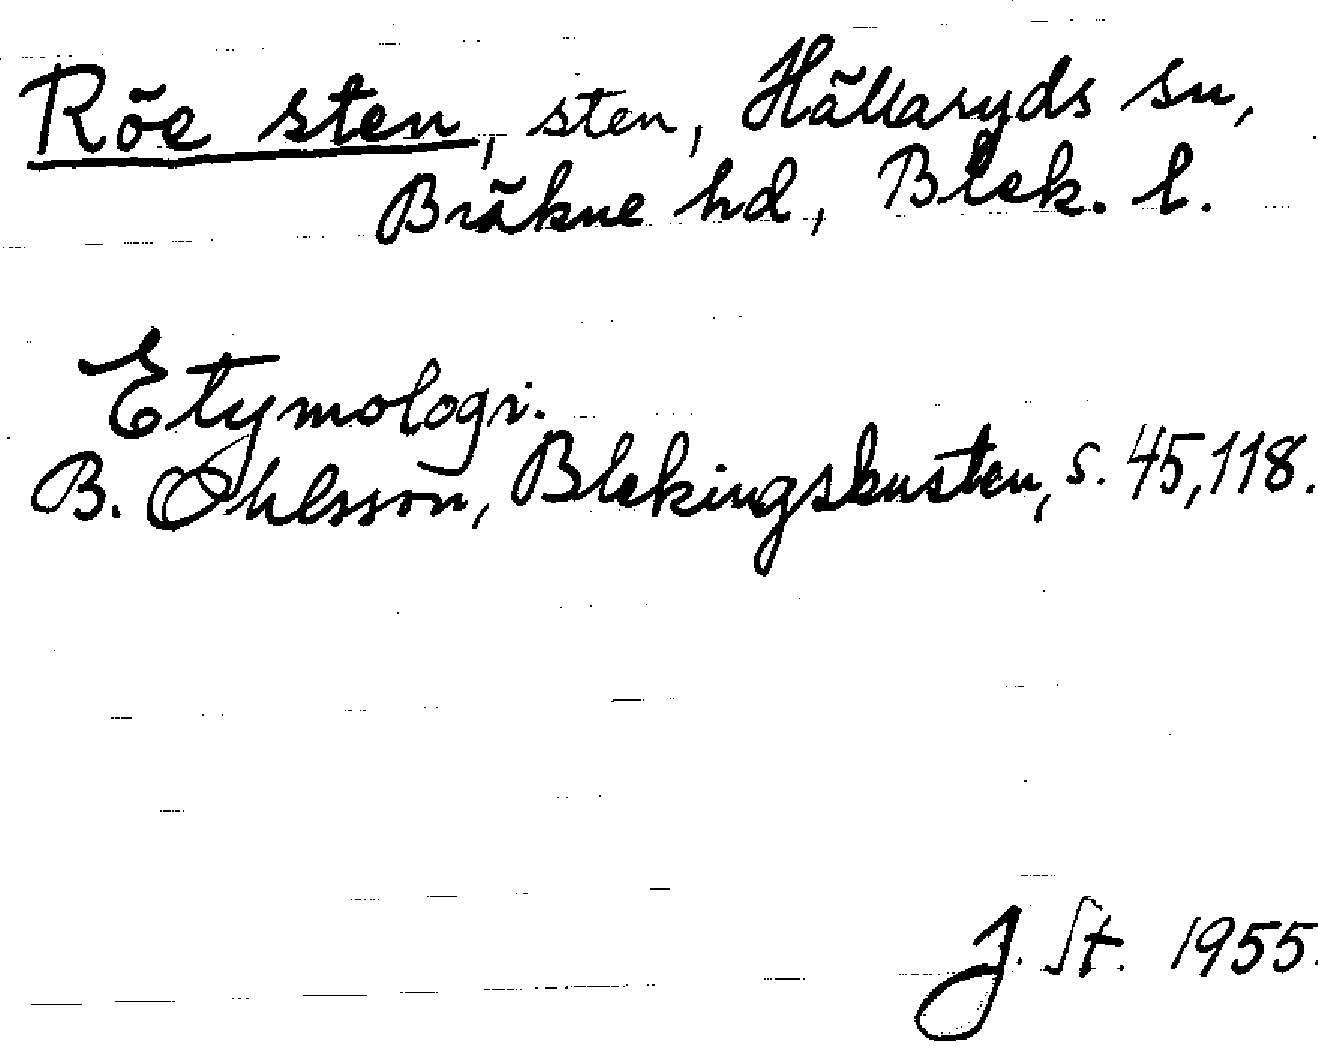 Röe sten, sten, Hällaryds sn,
Bräkne hd, Blek. l.
Etymologi.
B. Ohlsson, Blekingskusten, s. 45,118.
J. St. 1955.